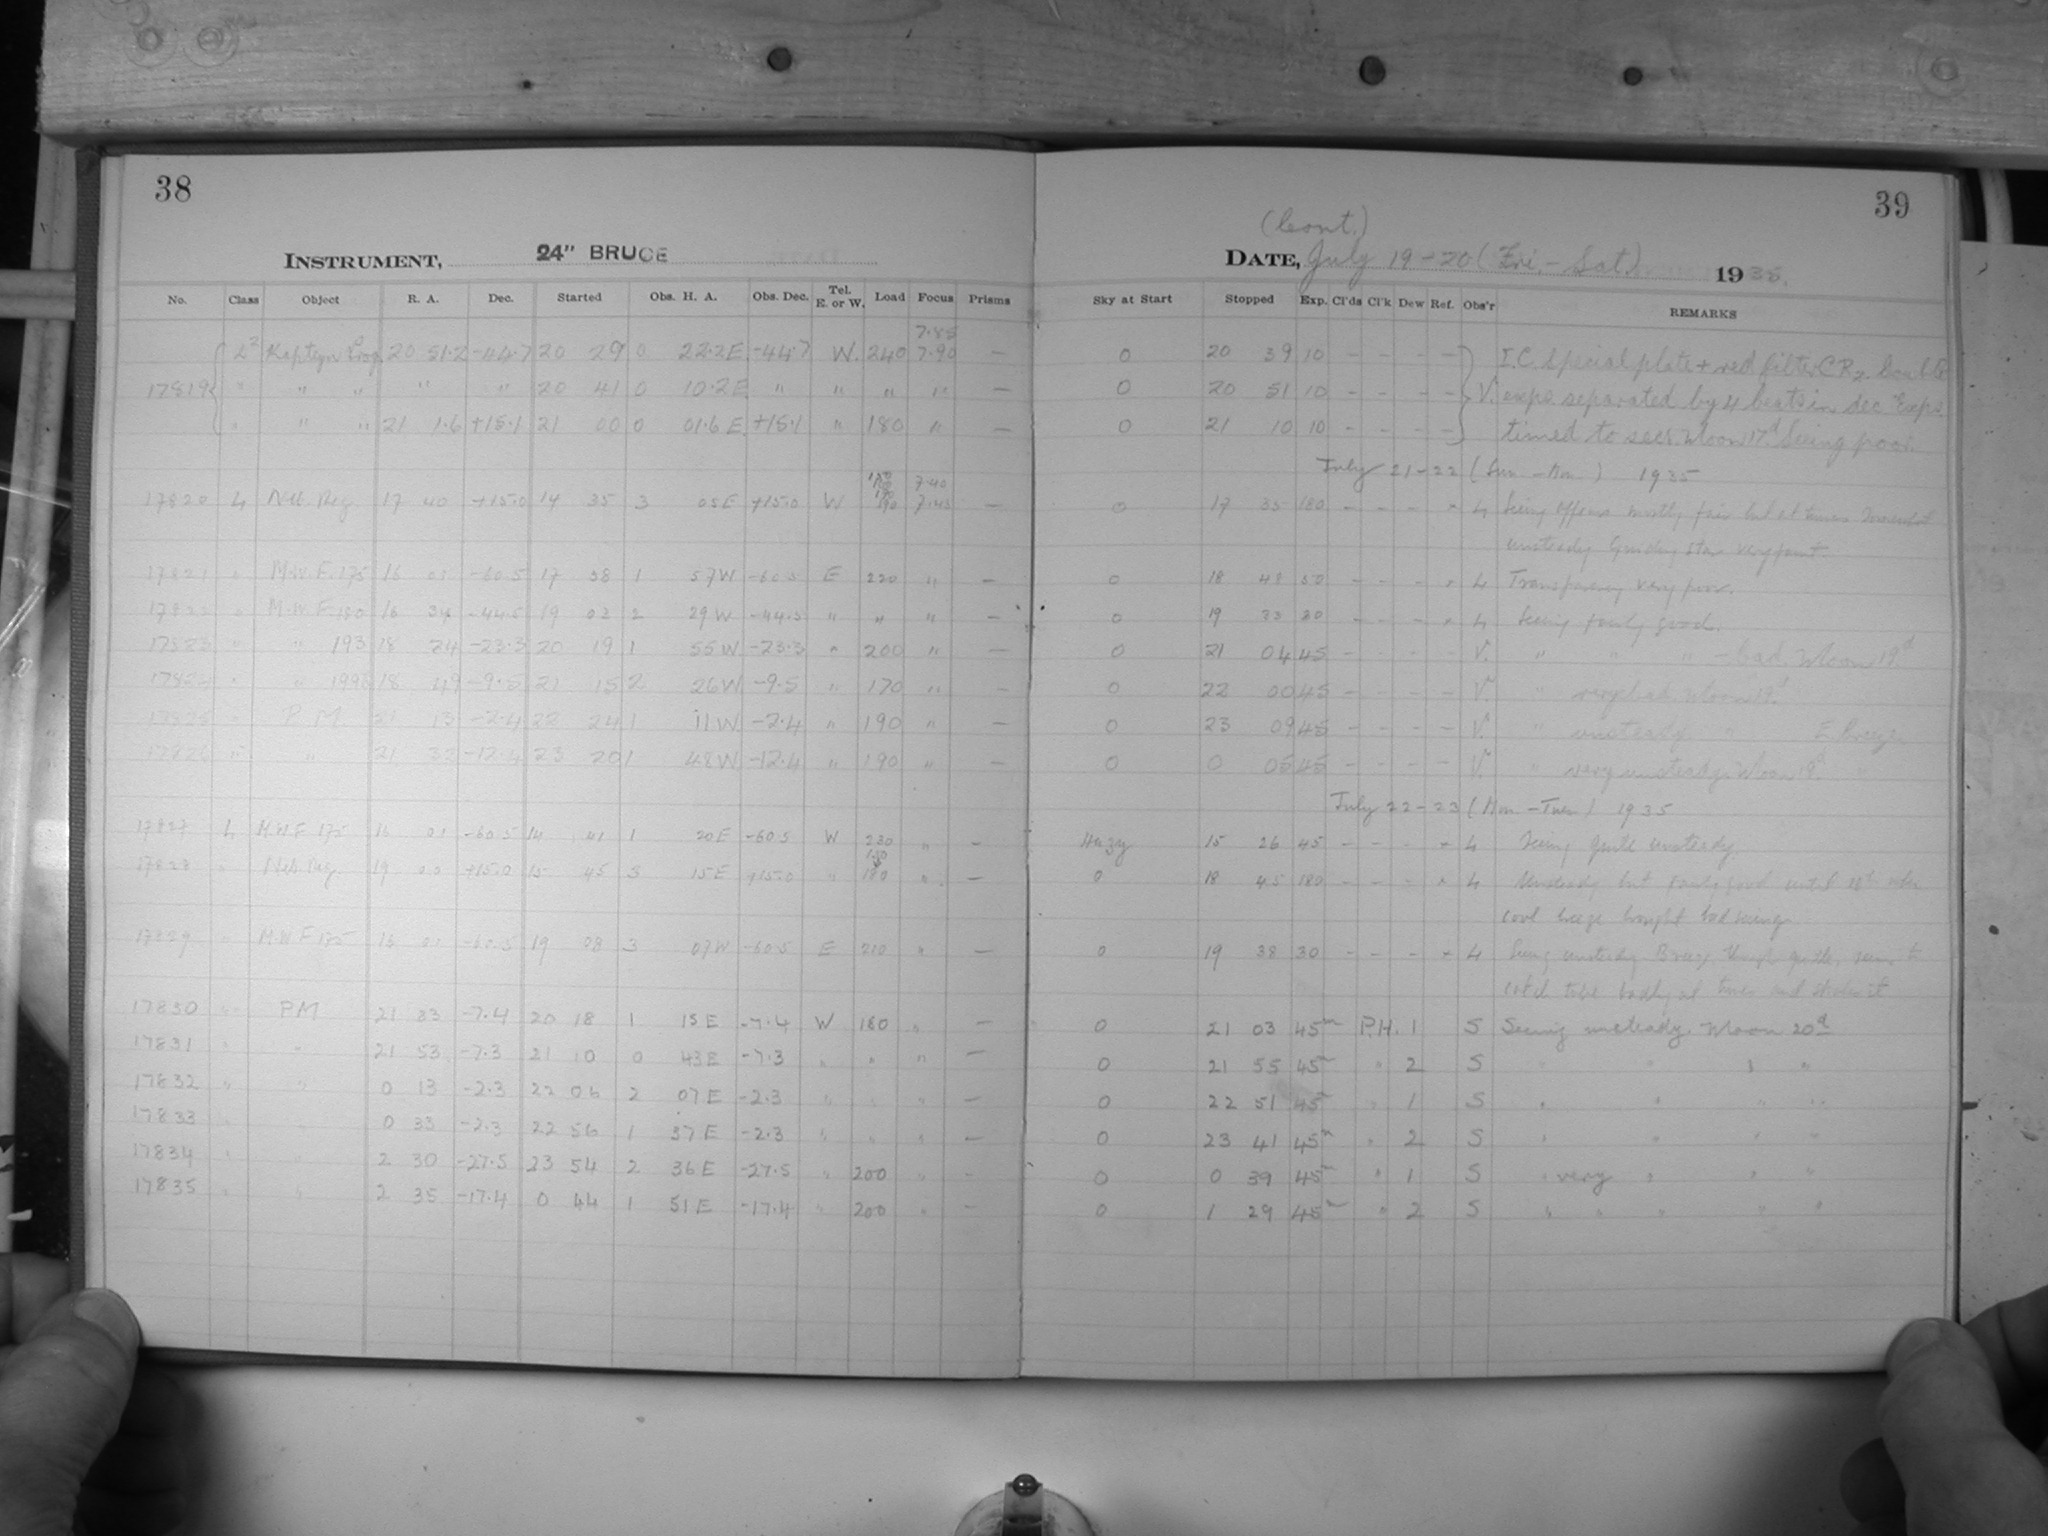 38
39
INSTRUMENT, 24" BRUCE
(Cont.)
DATE, July 19-20 (Fri.-Sat) 1935.
No. Class Object R. A. Dec. Started Obs. H. A. Obs. Dec. Tel. E. or W. Load Focus Prisms Sky at Start Stopped Exp. Cl'ds Cl'k Dew Ref. Obs'r REMARKS
7.85
20 51.2 -44.7 20 29 0 22.2E -44.7 W. 240 7.90 — 0 20 39 10 - - - - I.C. Special plate + red filter
17819 " " " " " 20 41 0 10.2E " " " " — 0 20 51 10 - - - - V. exps separated by 4 beats in dec Exps
" " " 21 1.6 +15.1 21 00 0 01.6E +15.1 " 180 " — 0 21 10 10 - - - - timed to secs. Moon 17d Seeing poor.
July 21-22 (Sun-Mon) 1935
7.40
17820 17 40 +15.0 14 35 3 05E +15.0 W 190 7.45 — 0 17 35 180 - - - Seeing mostly fair but at times
unsteady Guiding star very faint.
17821 " M.W.F. 175 16 01 -60.5 17 58 1 57W -60.5 E 220 " — 0 18 48 50 - - - Transparency very poor.
17822 " M.W.F. 180 16 34 -44.5 19 03 2 29W -44.5 " " " — 0 19 33 30 - - - Seeing fairly good.
17823 " " 193 18 24 -23.3 20 19 1 55W -23.3 " 200 " — 0 21 04 45 - - - - V. " " " - bad. Moon 19d
17824 " " 18 49 -9.5 21 15 2 26W -9.5 " 170 " — 0 22 00 45 - - - - V. " very bad. Moon 19d
17825 " P.M. 21 13 -2.4 22 24 1 11W -2.4 " 190 " — 0 23 09 45 - - - - V. " unsteady " E. Breeze
17826 " " 21 33 -12.4 23 20 1 48W -12.4 " 190 " — 0 0 05 45 - - - - V. " very unsteady. Moon 19d "
July 22-23 (Mon-Tues) 1935
17827 M.W.F. 175 16 01 -60.5 14 41 1 20E -60.5 W 230 " — Hazy 15 26 45 - - - Seeing quite unsteady.
17828 " 19 00 +15.0 15 45 3 15E +15.0 " 180 " — 0 18 45 180 - - - Unsteady but fairly good until
cool breeze brought bad seeing.
17829 " M.W.F. 175 16 01 -60.5 19 08 3 07W -60.5 E 210 " — 0 19 38 30 - - - Seeing unsteady Breeze, though gentle, seems to
catch tube badly at times and it
17830 " PM 21 33 -7.4 20 18 1 15E -7.4 W 180 " — 0 21 03 45m P.H. 1 S Seeing unsteady. Moon 20d
17831 " " 21 53 -7.3 21 10 0 43E -7.3 " " " — 0 21 55 45m " 2 S " " " "
17832 " " 0 13 -2.3 22 06 2 07E -2.3 " " " — 0 22 51 45m " 1 S " " " "
17833 0 33 -2.3 22 56 1 37E -2.3 " " " — 0 23 41 45m " 2 S " " " "
17834 " " 2 30 -27.5 23 54 2 36E -27.5 " 200 " — 0 0 39 45m " 1 S " very " " "
17835 " " 2 35 -17.4 0 44 1 51E -17.4 " 200 " — 0 1 29 45m " 2 S " " " " "